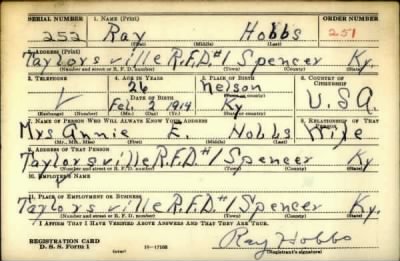 SERIAL NUMBER 1. NAME (Print) ORDER NUMBER
252 Ray Hobbs 251
(First) (Middle) (Last)
2. ADDRESS (Print)
Taylorsville R.F.D.#1 Spencer Ky.
(Number and street or R. F. D. number) (Town) (County) (State)
3. TELEPHONE 4. AGE IN YEARS 5. PLACE OF BIRTH 6. COUNTRY OF CITIZENSHIP
26 Nelson
DATE OF BIRTH (Town or county)
Feb. 2 1914 Ky U.S.A.
(Exchange) (Number) (Mo.) (Day) (Yr.) (State or country)
7. NAME OF PERSON WHO WILL ALWAYS KNOW YOUR ADDRESS 8. RELATIONSHIP OF THAT PERSON
Mrs Annie E. Hobbs Wife
(Mr., Mrs., Miss) (First) (Middle) (Last)
9. ADDRESS OF THAT PERSON
Taylorsville R.F.D.#1 Spencer Ky
(Number and street or R. F. D. number) (Town) (County) (State)
10. EMPLOYER'S NAME
11. PLACE OF EMPLOYMENT OR BUSINESS
Taylorsville R.F.D.#1 Spencer Ky.
(Number and street or R. F. D. number) (Town) (County) (State)
I AFFIRM THAT I HAVE VERIFIED ABOVE ANSWERS AND THAT THEY ARE TRUE.
REGISTRATION CARD
D. S. S. Form 1 16—17105 Ray Hobbs
(Registrant's signature)